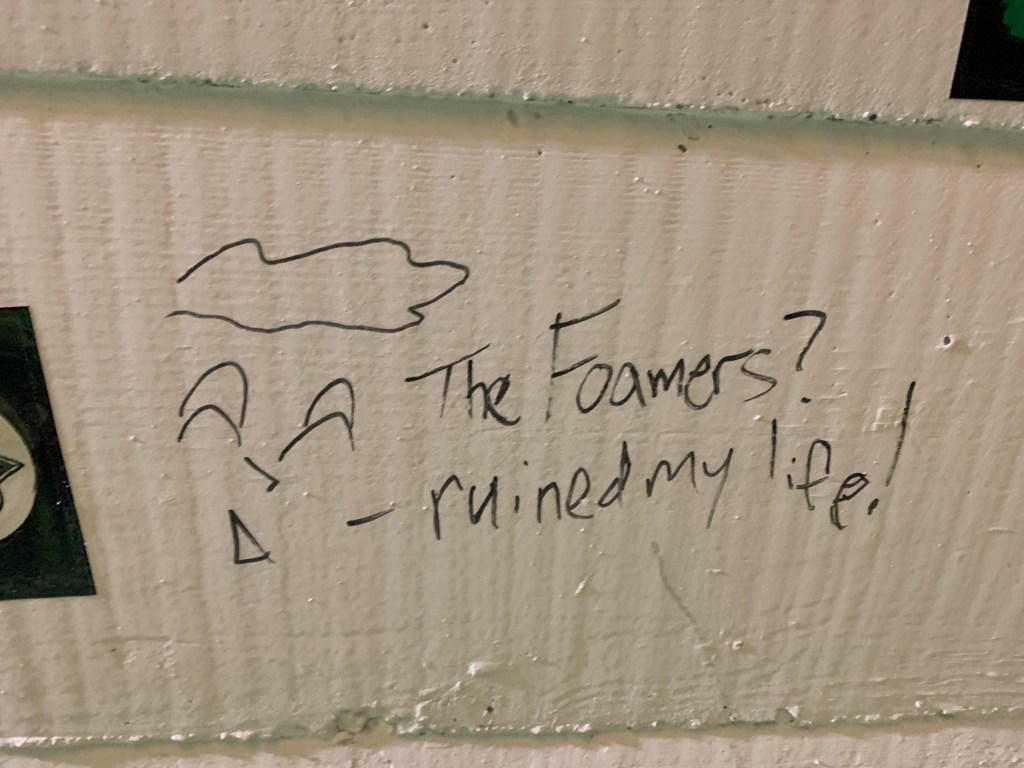 The Foamers?
- ruined my life!